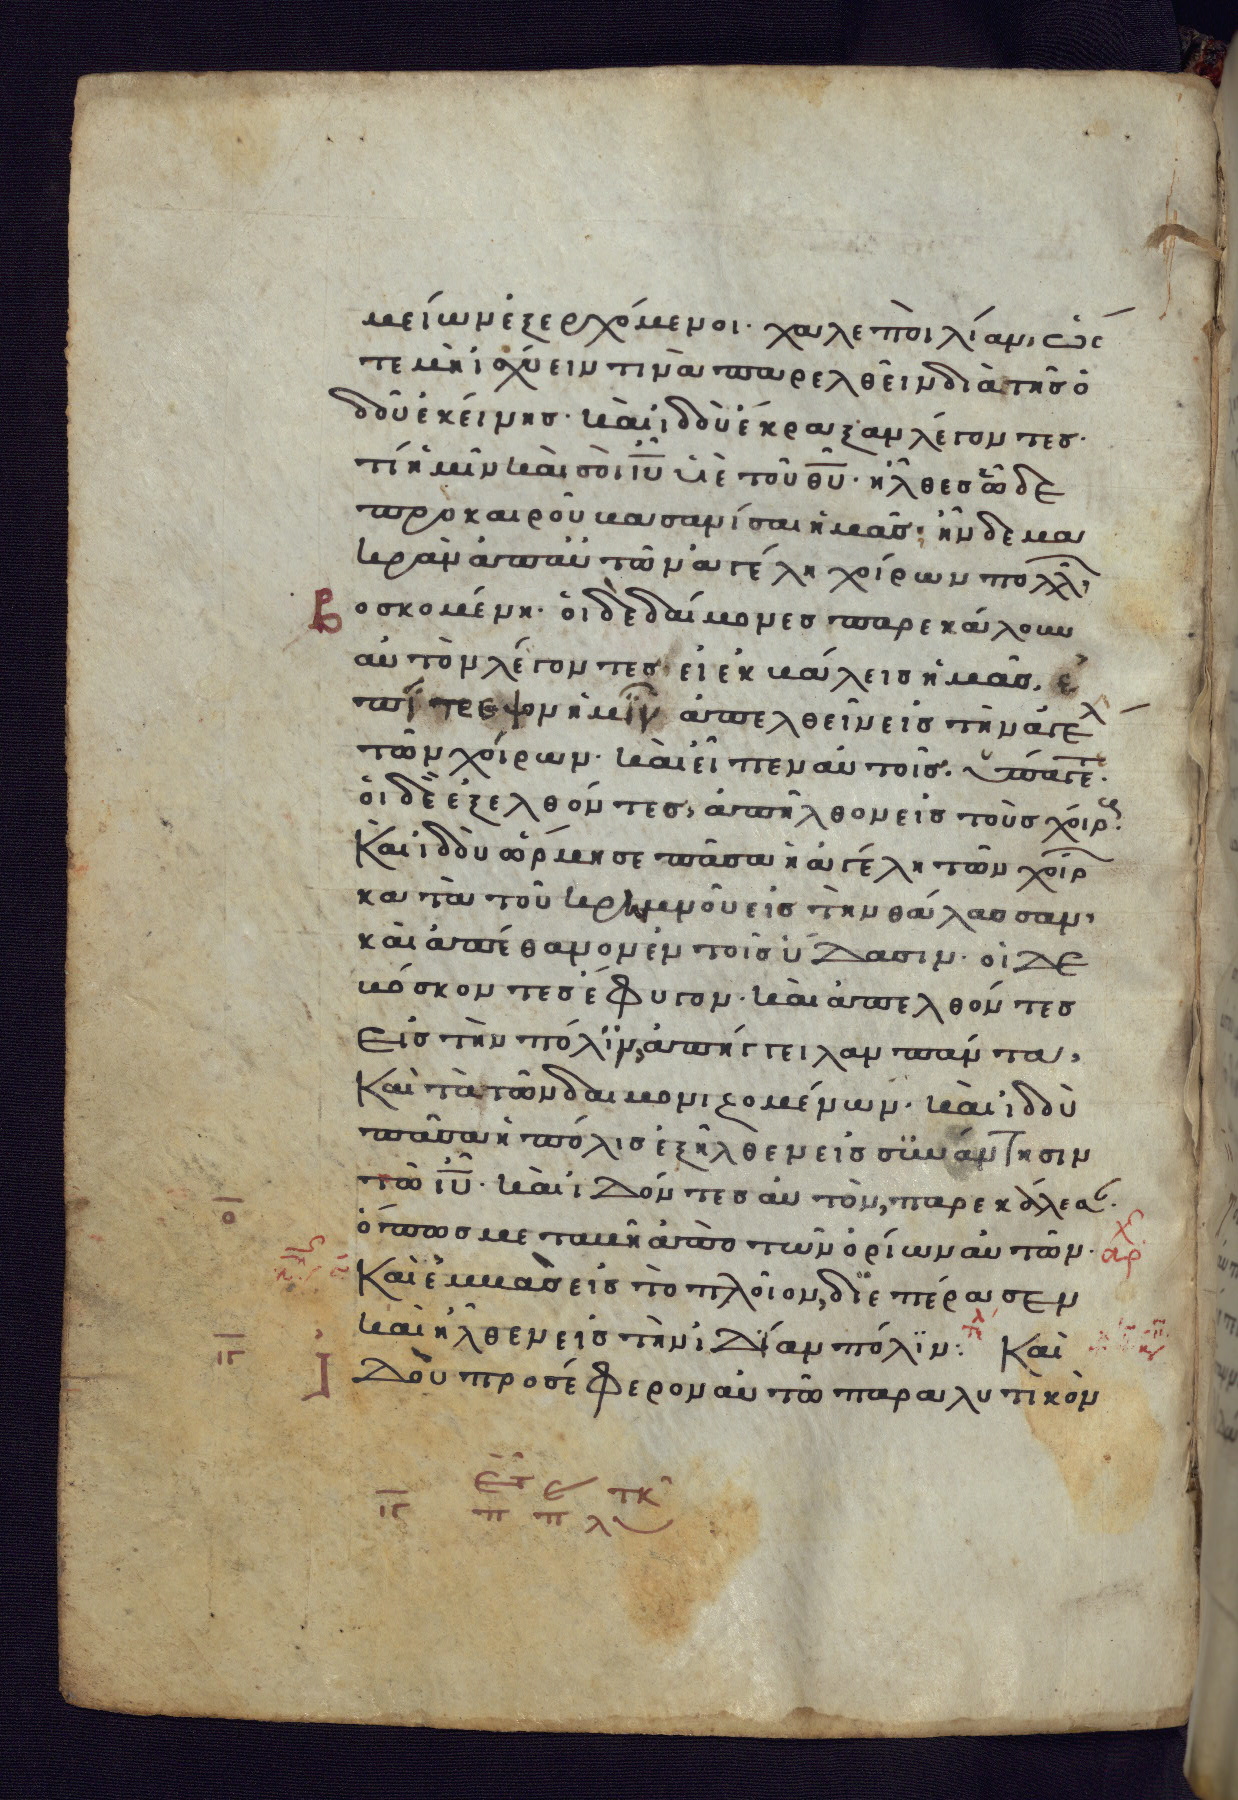 μείων ἐξερχόμενοι· χαλεποὶ λίαν, ὥσ
τε μὴ ἰσχύειν τινὰ παρελθεῖν διὰ τῆς ὁ
δοῦ ἐκείνης· καὶ ἰδοὺ ἔκραξαν λέγοντες·
τί ἡμῖν καὶ σοὶ ιυ υἱὲ τοῦ θυ· ἦλθες ὧδε
πρὸ καιροῦ βασανίσαι ἡμᾶς· ἦν δὲ μα
κρὰν ἀπ' αὐτῶν ἀγέλη χοίρων πολλ
Βοσκομένη· οἱ δὲ δαίμονες παρεκάλουν
αὐτὸν λέγοντες· εἰ ἐκβάλεις ἡμᾶς, ἐ
πίτρεψον ἡμῖν ἀπελθεῖν εἰς τὴν ἀγέλ
τῶν χοίρων· καὶ εἶπεν αὐτοῖς· ὑπάγετε·
οἱ δὲ ἐξελθόντες, ἀπῆλθον εἰς τοὺς χοίρους·
Καὶ ἰδοὺ ὥρμησε πᾶσα ἡ ἀγέλη τῶν χοίρ
κατὰ τοῦ κρημνοῦ εἰς τὴν θάλασσαν,
καὶ ἀπέθανον ἐν τοῖς ὕδασιν· οἱ δὲ
βόσκοντες ἔφυγον· καὶ ἀπελθόντες
εἰς τὴν πόλιν, ἀπήγγειλαν πάντα,
Καὶ τὰ τῶν δαιμονιζομένων· καὶ ἰδοὺ
πᾶσα ἡ πόλις ἐξῆλθεν εἰς συνάντησιν
τῷ ιυ· καὶ ἰδόντες αὐτὸν, παρεκάλεσαν·
ο
ὅπως μεταβῇ ἀπὸ τῶν ὁρίων αὐτῶν·
αρχ
Καὶ ἐμβὰς εἰς τὸ πλοῖον, διεπέρασεν
καὶ ἦλθεν εἰς τὴν ἰδίαν πόλιν: Καὶ
ιγ
Ἰδοὺ προσέφερον αὐτῷ παραλυτικὸν
ιγ